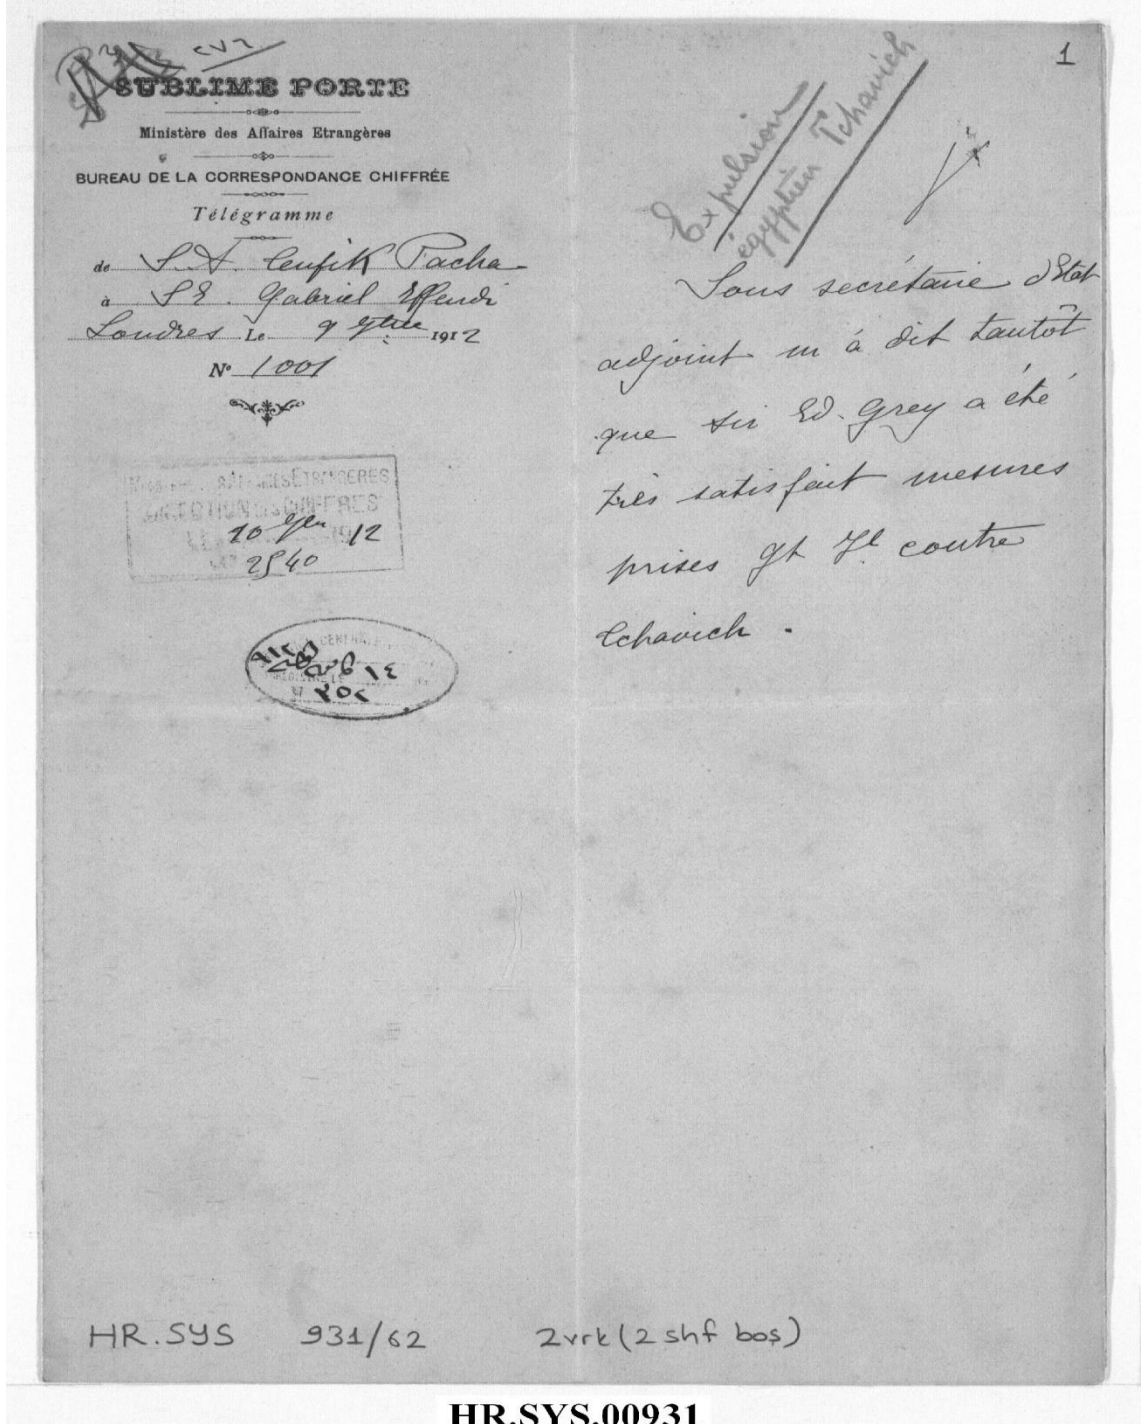 CV2
SUBLIME PORTE
Ministère des Affaires Etrangères
BUREAU DE LA CORRESPONDANCE CHIFFRÉE
Télégramme
de S.A. Teufik Pacha
à S E. Gabriel Effendi
Londres Le 9 9bre 1912
N° 1001
AFFAIRES ETRANGERES
DIRECTION DES CHIFFRES
10 12
2540
١٤
٢٥٢
1
Expulsion
égyptien Tchavich
Sous secrétaire d'Etat
adjoint m'a dit tantôt
que sir Ed. Grey a été
très satisfait mesures
prises Gt Il contre
Tchavich.
HR.SYS 931/62 2vrk (2 shf boş)
HR.SYS.00931